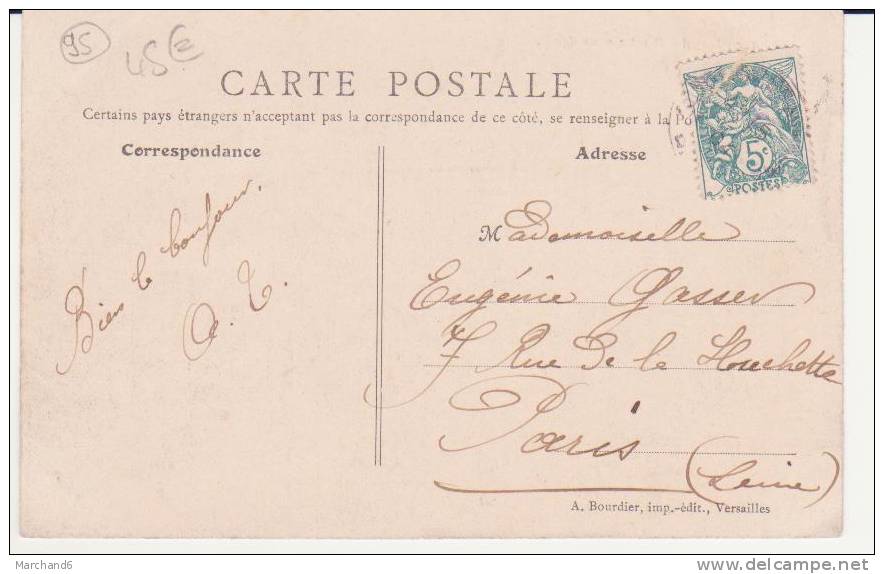 95
45€
CARTE POSTALE
Certains pays étrangers n'acceptant pas la correspondance de ce côté, se renseigner à la Po
Correspondance
Adresse
5c
POSTES
Bien le bonjour.
A. T.
Mademoiselle
Eugénie Gasser
7 Rue De la Huchette
Paris
(Seine)
A. Bourdier, imp.-édit., Versailles
Marchand6
www.delcampe.net